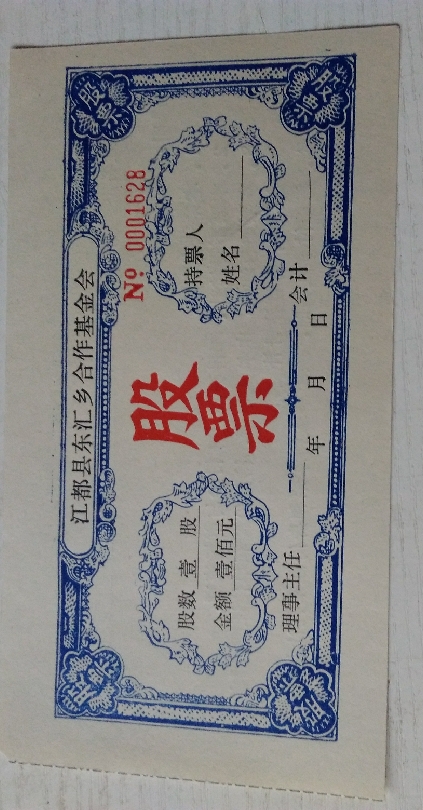 江都县东汇乡合作基金会
№ 0001628
股票
股数 壹 股
金额 壹佰元
持票人
姓名
理事主任
会计
年 月 日
股票
股票
股票
股票